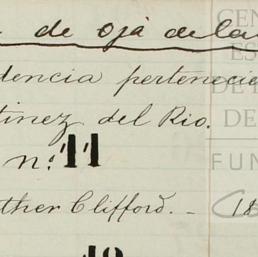 de ojá dela
dencia pertenecie
tinez del Rio.
nº 11
ther Clifford. - 18
CEN
ES
DE
DE
FUN